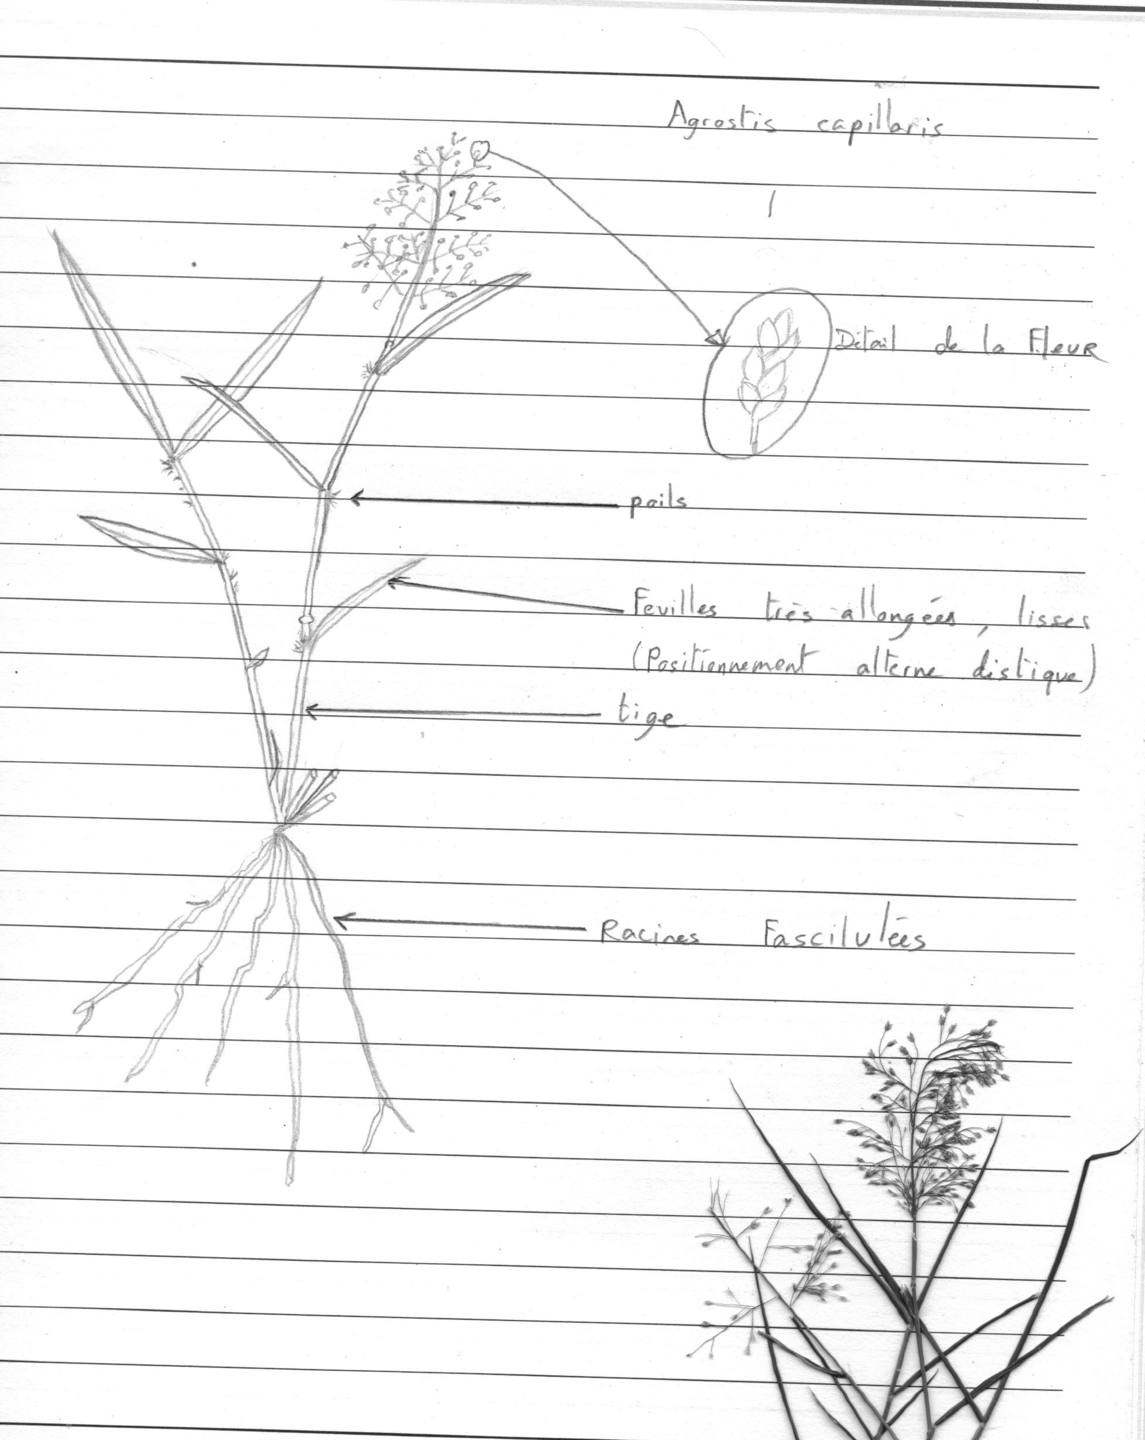 Agrostis capillaris
Détail de la Fleur
poils
Feuilles très allongées, lisses
(Positionnement alterne distique)
tige
Racines Fascilulées